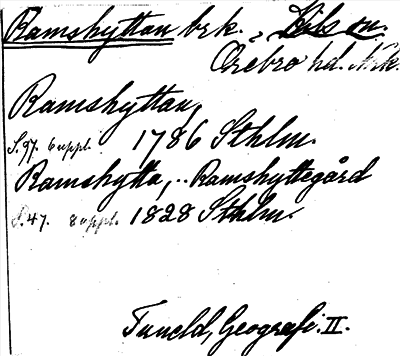 Ramshyttan brk.,
Örebro hd. Nrk.
Ramshyttan,
S.97. 6 uppl. 1786 Sthlm.
Ramshytta, .. Ramshyttegård
S.47. 8 uppl. 1828 Sthlm.
Tuneld, Geografi. II.